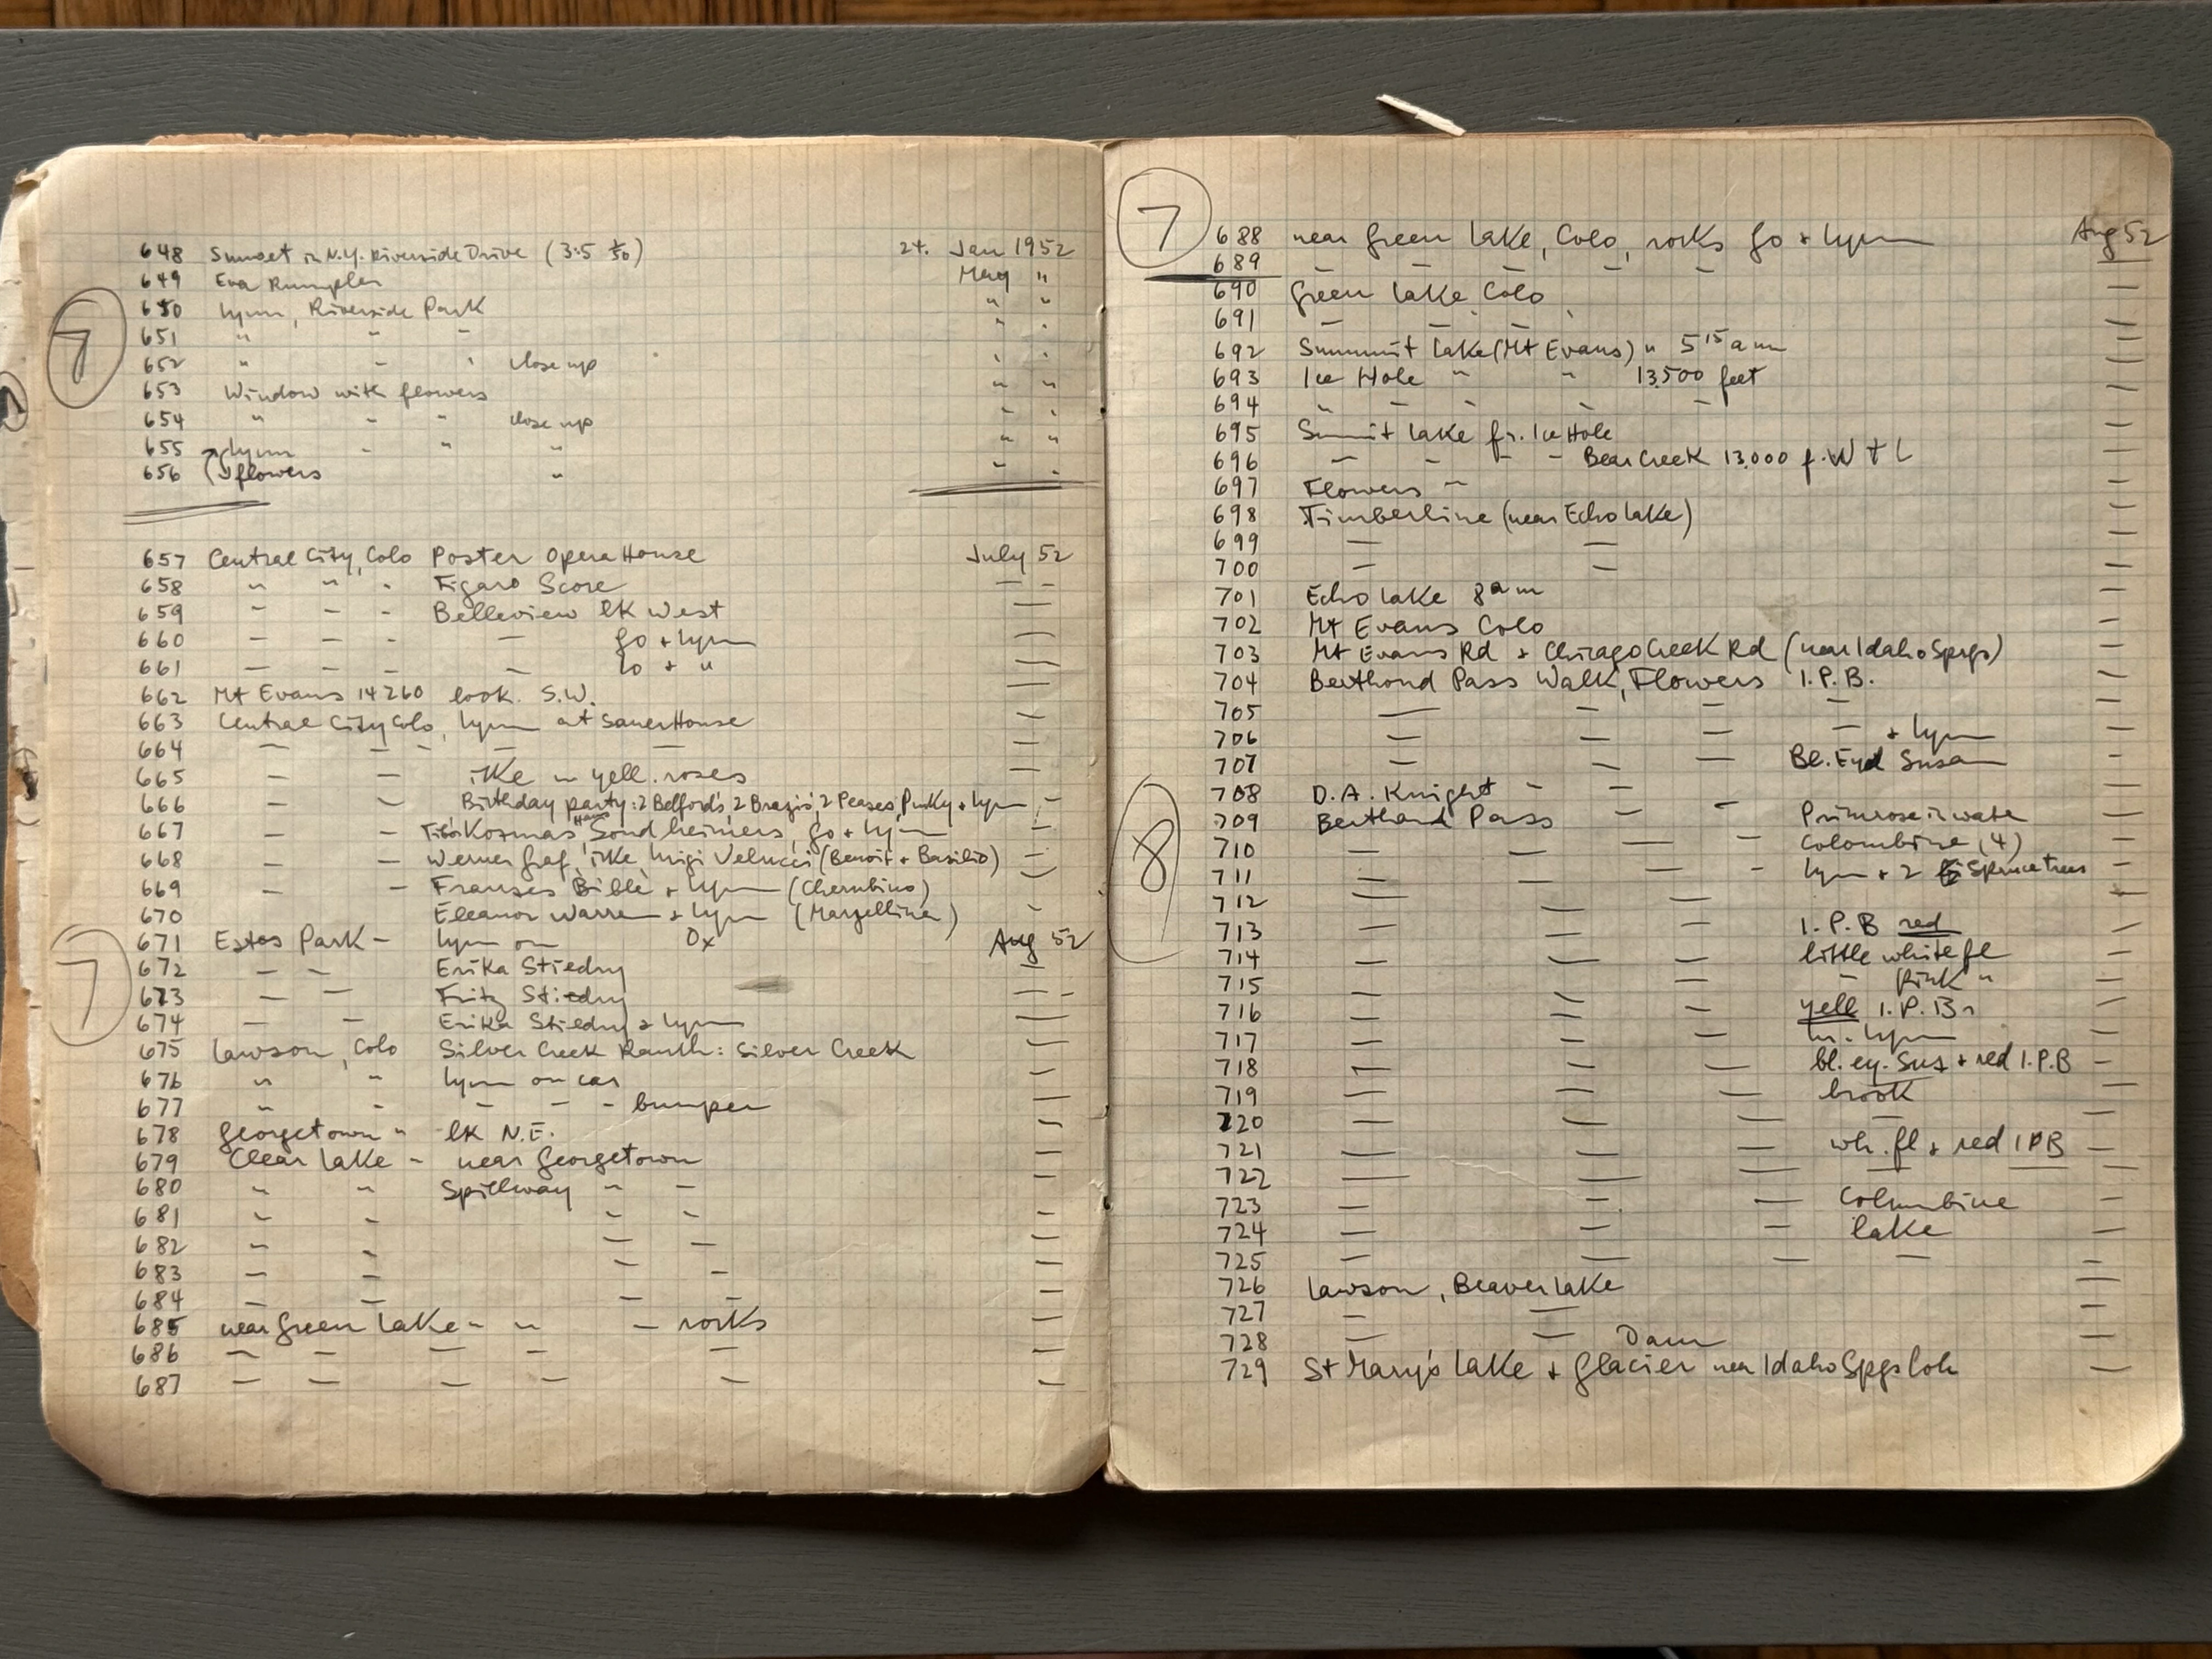 7
648 Sunset in N.Y. Riverside Drive (3.5 1/50) 24. Jan 1952
649 Eva Rumpler May "
650 Lynn, Riverside Park " "
651 " " " " "
652 " " " close up " "
653 Window with flowers " "
654 " " " close up " "
655 Lynn " " " " "
656 flowers " " "
657 Central City, Colo Poster Opera House July 52
658 " " " Figaro Score — —
659 " " " Belleview lk West —
660 — — — — Jo + Lynn —
661 — — — — Lo + " —
662 Mt Evans 14260 look. S.W. —
663 Central City Colo, Lynn at Sauer House —
664 — — — — — —
665 — — ilke in yell. roses —
666 — — Birthday party: 2 Belford's, 2 Brazis', 2 Peases, Pinky + Lynn —
667 — — Tibor Kozmas, Hans Sondheimers, Jo + Lynn —
668 — — Werner Graf, ilke, Luigi Velucci (Benoit + Basilio) —
669 — — Franses Biblè + Lynn (Cherubino) —
670 Eleanor Warren + Lynn (Marzellina) —
7
671 Estes Park — Lynn on Ox Aug 52
672 — — Erika Stiedry —
673 — — Fritz Stiedry — —
674 — — Erika Stiedry + Lynn —
675 Lawson, Colo Silver Creek Ranch: Silver Creek —
676 " " Lynn on car —
677 " " — — — bumper —
678 Georgetown " lk N.E. —
679 Clear Lake — near Georgetown —
680 " " Spillway — — —
681 " " — — —
682 " " — — —
683 — — — — —
684 — — — — —
685 near Green Lake — " — rocks —
686 — — — — — —
687 — — — — — —
7
688 near Green Lake, Colo, rocks Jo + Lynn Aug 52
689 — — — — — —
690 Green Lake Colo —
691 — — — —
692 Summit Lake (Mt Evans) " 5 15 am —
693 Ice Hole " " 13.500 feet —
694 " — — — — —
695 Summit Lake fr. Ice Hole —
696 — — — — Bear Creek 13.000 f. W + L —
697 Flowers — —
698 Timberline (near Echo Lake) —
699 — — —
700 — — —
701 Echo Lake 8 am —
702 Mt Evans Colo —
703 Mt Evans Rd + Chicago Creek Rd (near Idaho Sprgs) —
704 Berthoud Pass Walk, Flowers I.P.B. —
705 — — — — —
706 — — — — + Lynn —
707 — — — Bl. Eyd Susan —
8
708 D.A. Knight — —
709 Berthoud Pass — — Primrose in water —
710 — — — Colombine (4) —
711 — — — — Lynn + 2 Spruce trees —
712 — — — —
713 — — — I.P.B red —
714 — — — little white fl —
715 — — — — pink " —
716 — — — yell I.P.Bs —
717 — — — Lynn —
718 — — — bl. ey. Sus + red I.P.B —
719 — — — brook —
720 — — — — —
721 — — — wh. fl + red IPB —
722 — — — — — —
723 — — — Columbine —
724 — — — lake —
725 — — — — —
726 Lawson, Beaver Lake —
727 — — —
728 — — Dam —
729 St Mary's Lake + Glacier near Idaho Spgs Colo —